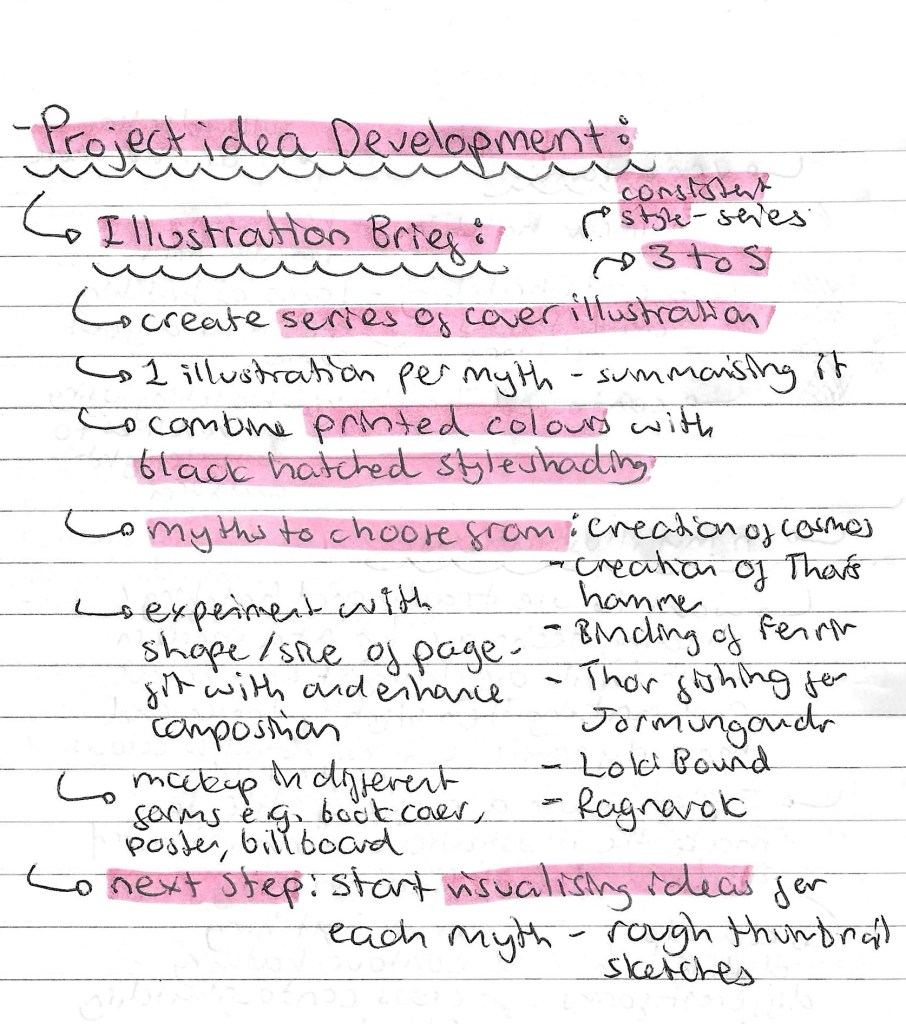 - Project idea Development:
Illustration Brief:
consistent
style - series
3 to 5
create series of cover illustration
1 illustration per myth - summarising it
combine printed colours with
black hatched style shading
myths to choose from: creation of cosmos
- creation of Thor's
hammer
- Binding of Fenrir
- Thor fishing for
Jormungandr
- Loki Bound
- Ragnarok
experiment with
shape/size of page -
fit with and enhance
composition
mockup in different
forms e.g. book cover,
poster, billboard
next step: start visualising ideas for
each myth - rough thumbnail
sketches